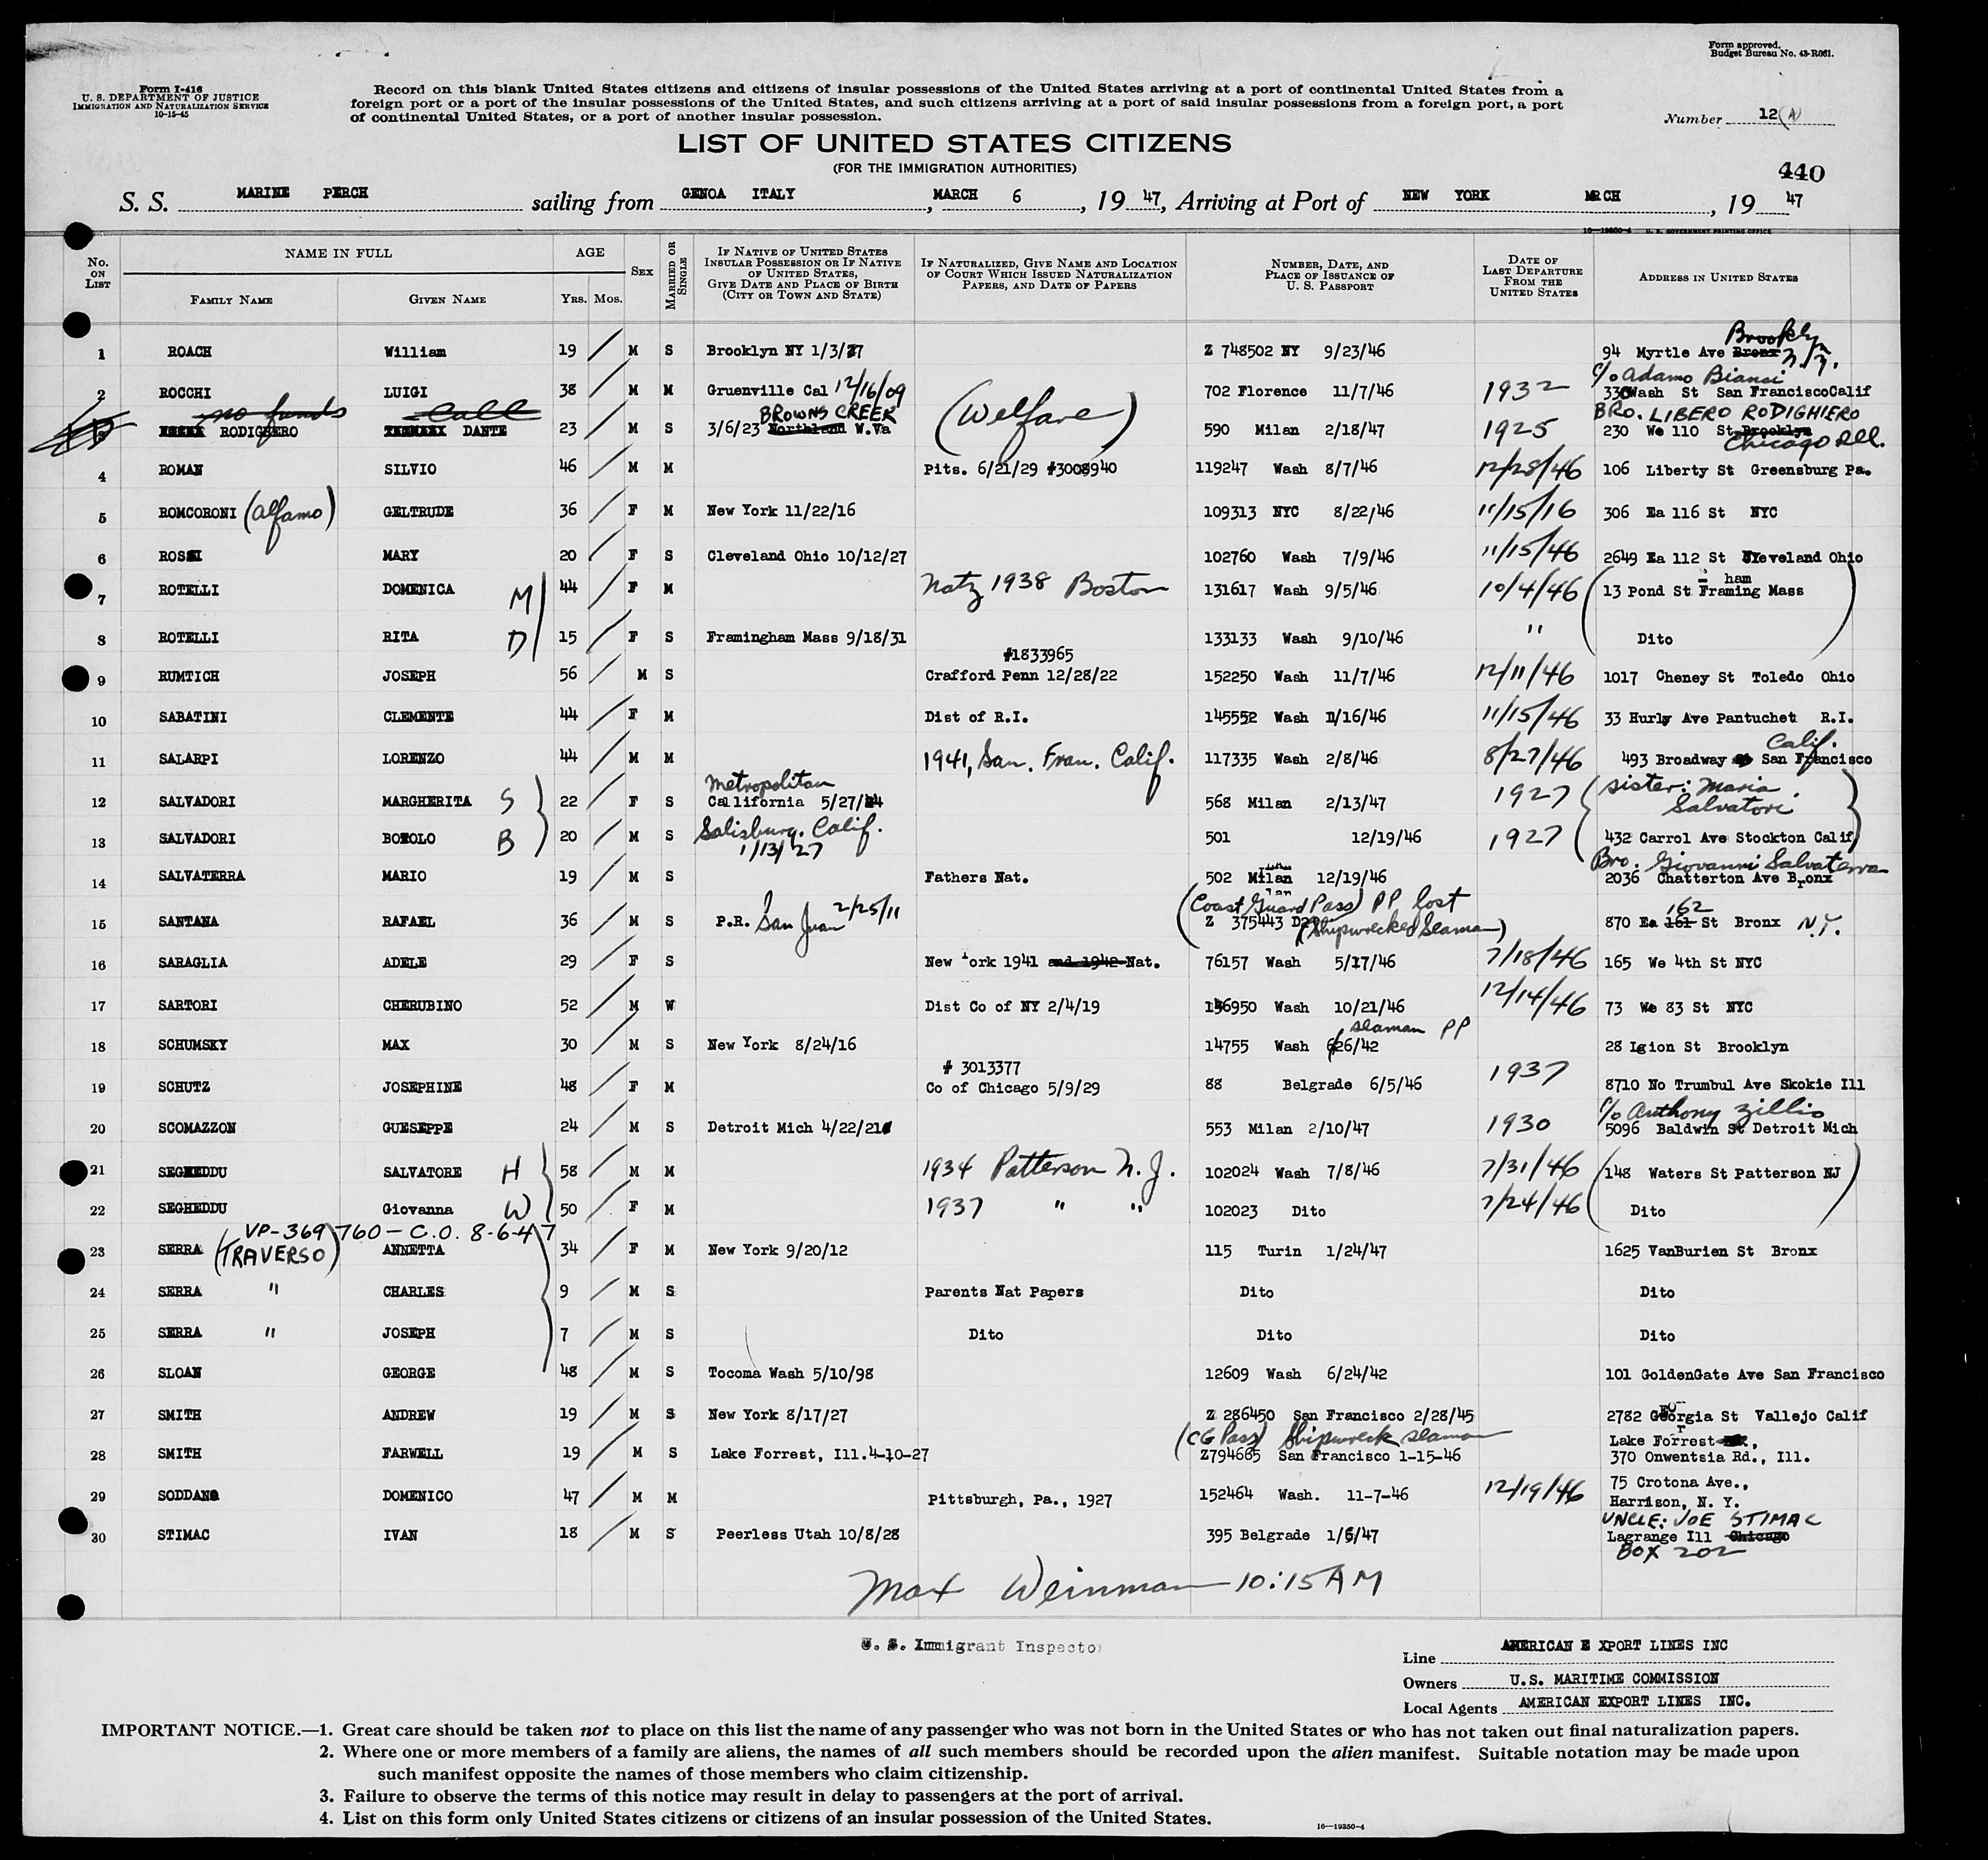 Form approved.
Budget Bureau No. 43-R061.
Form I-416
U. S. DEPARTMENT OF JUSTICE
IMMIGRATION AND NATURALIZATION SERVICE
10-15-45
Record on this blank United States citizens and citizens of insular possessions of the United States arriving at a port of continental United States from a
foreign port or a port of the insular possessions of the United States, and such citizens arriving at a port of said insular possessions from a foreign port, a port
of continental United States, or a port of another insular possession.
Number 12 (A)
LIST OF UNITED STATES CITIZENS
(FOR THE IMMIGRATION AUTHORITIES)
440
S. S. MARINE PERCH sailing from GENOA ITALY, MARCH 6, 19 47, Arriving at Port of NEW YORK MRCH, 19 47
16—19350-4 U. S. GOVERNMENT PRINTING OFFICE
No. ON LIST
NAME IN FULL
FAMILY NAME GIVEN NAME
AGE
YRS. MOS.
SEX
MARRIED OR SINGLE
IF NATIVE OF UNITED STATES INSULAR POSSESSION OR IF NATIVE OF UNITED STATES, GIVE DATE AND PLACE OF BIRTH (CITY OR TOWN AND STATE)
IF NATURALIZED, GIVE NAME AND LOCATION OF COURT WHICH ISSUED NATURALIZATION PAPERS, AND DATE OF PAPERS
NUMBER, DATE, AND PLACE OF ISSUANCE OF U. S. PASSPORT
DATE OF LAST DEPARTURE FROM THE UNITED STATES
ADDRESS IN UNITED STATES
Brooklyn
1 ROACH William 19 M S Brooklyn NY 1/3/27 Z 748502 NY 9/23/46 94 Myrtle Ave Bronx N.Y.
c/o Adamo Bianci
2 ROCCHI LUIGI 38 M M Gruenville Cal 12/16/09 702 Florence 11/7/46 1932 330 Wash St San FranciscoCalif
no funds Call BROWNS CREEK (Welfare) BRO. LIBERO RODIGHIERO
3 RODIGHERO DANTE 23 M S 3/6/23 Northland W.Va 590 Milan 2/18/47 1925 230 We 110 St Brooklyn
Chicago Ill.
4 ROMAN SILVIO 46 M M Pits. 6/21/29 #3008940 119247 Wash 8/7/46 12/28/46 106 Liberty St Greensburg Pa.
5 ROMCORONI (Alfamo) GELTRUDE 36 F M New York 11/22/16 109313 NYC 8/22/46 11/15/16 306 Ea 116 St NYC
6 ROSSI MARY 20 F S Cleveland Ohio 10/12/27 102760 Wash 7/9/46 11/15/46 2649 Ea 112 St Cleveland Ohio
ham
7 ROTELLI DOMENICA M 44 F M Natz 1938 Boston 131617 Wash 9/5/46 10/4/46 13 Pond St Framing Mass
8 ROTELLI RITA D 15 F S Framingham Mass 9/18/31 133133 Wash 9/10/46 " Dito
#1833965
9 RUMTICH JOSEPH 56 M S Crafford Penn 12/28/22 152250 Wash 11/7/46 12/11/46 1017 Cheney St Toledo Ohio
10 SABATINI CLEMENTE 44 F M Dist of R.I. 145552 Wash /16/46 11/15/46 33 Hurly Ave Pantuchet R.I.
Calif.
11 SALARPI LORENZO 44 M M 1941, San. Fran. Calif. 117335 Wash 2/8/46 8/27/46 493 Broadway San Francisco
Metropolitan sister: Maria Salvatori
12 SALVADORI MARGHERITA S 22 F S California 5/27/24 568 Milan 2/13/47 1927
Salisburg. Calif.
13 SALVADORI BOTOLO B 20 M S 1/13/27 501 12/19/46 1927 432 Carrol Ave Stockton Calif
Bro. Giovanni Salvaterra
14 SALVATERRA MARIO 19 M S Fathers Nat. 502 Milan 12/19/46 2036 Chatterton Ave Bronx
(Coast Guard Pass) PP lost
162
15 SANTANA RAFAEL 36 M S P.R. San Juan 2/25/11 Z 375443 (Shipwrecked Seaman) 870 Ea 161 St Bronx N.Y.
16 SARAGLIA ADELE 29 F S New York 1941 and 1942 Nat. 76157 Wash 5/17/46 7/18/46 165 We 4th St NYC
17 SARTORI CHERUBINO 52 M W Dist Co of NY 2/4/19 146950 Wash 10/21/46 12/14/46 73 We 83 St NYC
seaman PP
18 SCHUMSKY MAX 30 M S New York 8/24/16 14755 Wash 6/26/42 28 Lgion St Brooklyn
# 3013377
19 SCHUTZ JOSEPHINE 48 F M Co of Chicago 5/9/29 88 Belgrade 6/5/46 1937 8710 No Trumbul Ave Skokie Ill
c/o Anthony Zillio
20 SCOMAZZON GUESEPPE 24 M S Detroit Mich 4/22/21 553 Milan 2/10/47 1930 5096 Baldwin St Detroit Mich
21 SEGHEDDU SALVATORE H 58 M M 1934 Patterson N.J. 102024 Wash 7/8/46 7/31/46 148 Waters St Patterson NJ
22 SEGHEDDU Giovanna W 50 F M 1937 " " 102023 Dito 7/24/46 Dito
VP-369760 - C.O. 8-6-47
23 SERRA (TRAVERSO) ANNETTA 34 F M New York 9/20/12 115 Turin 1/24/47 1625 VanBurien St Bronx
24 SERRA " CHARLES 9 M S Parents Nat Papers Dito Dito
25 SERRA " JOSEPH 7 M S Dito Dito Dito
26 SLOAN GEORGE 48 M S Tocoma Wash 5/10/98 12609 Wash 6/24/42 101 GoldenGate Ave San Francisco
27 SMITH ANDREW 19 M S New York 8/17/27 Z 286450 San Francisco 2/28/45 2782 Georgia St Vallejo Calif
(CG Pass) Shipwreck seaman Lake Forrest,
28 SMITH FARWELL 19 M S Lake Forrest, Ill.4-10-27 Z794665 San Francisco 1-15-46 370 Onwentsia Rd., Ill.
75 Crotona Ave.,
29 SODDANO DOMENICO 47 M M Pittsburgh, Pa., 1927 152464 Wash. 11-7-46 12/19/46 Harrison, N. Y.
UNCLE: JOE STIMAC
30 STIMAC IVAN 18 M S Peerless Utah 10/8/28 395 Belgrade 1/6/47 Lagrange Ill Chicago
BOX 202
Max Weinman 10:15 AM
U. S. Immigrant Inspector
Line AMERICAN E XPORT LINES INC
Owners U.S. MARITIME COMMISSION
Local Agents AMERICAN EXPORT LINES INC.
IMPORTANT NOTICE.—1. Great care should be taken not to place on this list the name of any passenger who was not born in the United States or who has not taken out final naturalization papers.
2. Where one or more members of a family are aliens, the names of all such members should be recorded upon the alien manifest. Suitable notation may be made upon
such manifest opposite the names of those members who claim citizenship.
3. Failure to observe the terms of this notice may result in delay to passengers at the port of arrival.
4. List on this form only United States citizens or citizens of an insular possession of the United States.
16—19350-4